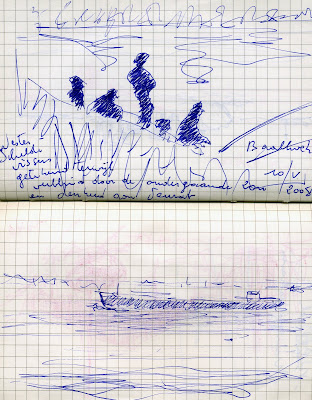 Wester
Schelde
vissers
getekend terwijl
verblind door de ondergaande zon
en denkend aan Seurat
Baalhoek
10/V/
2008